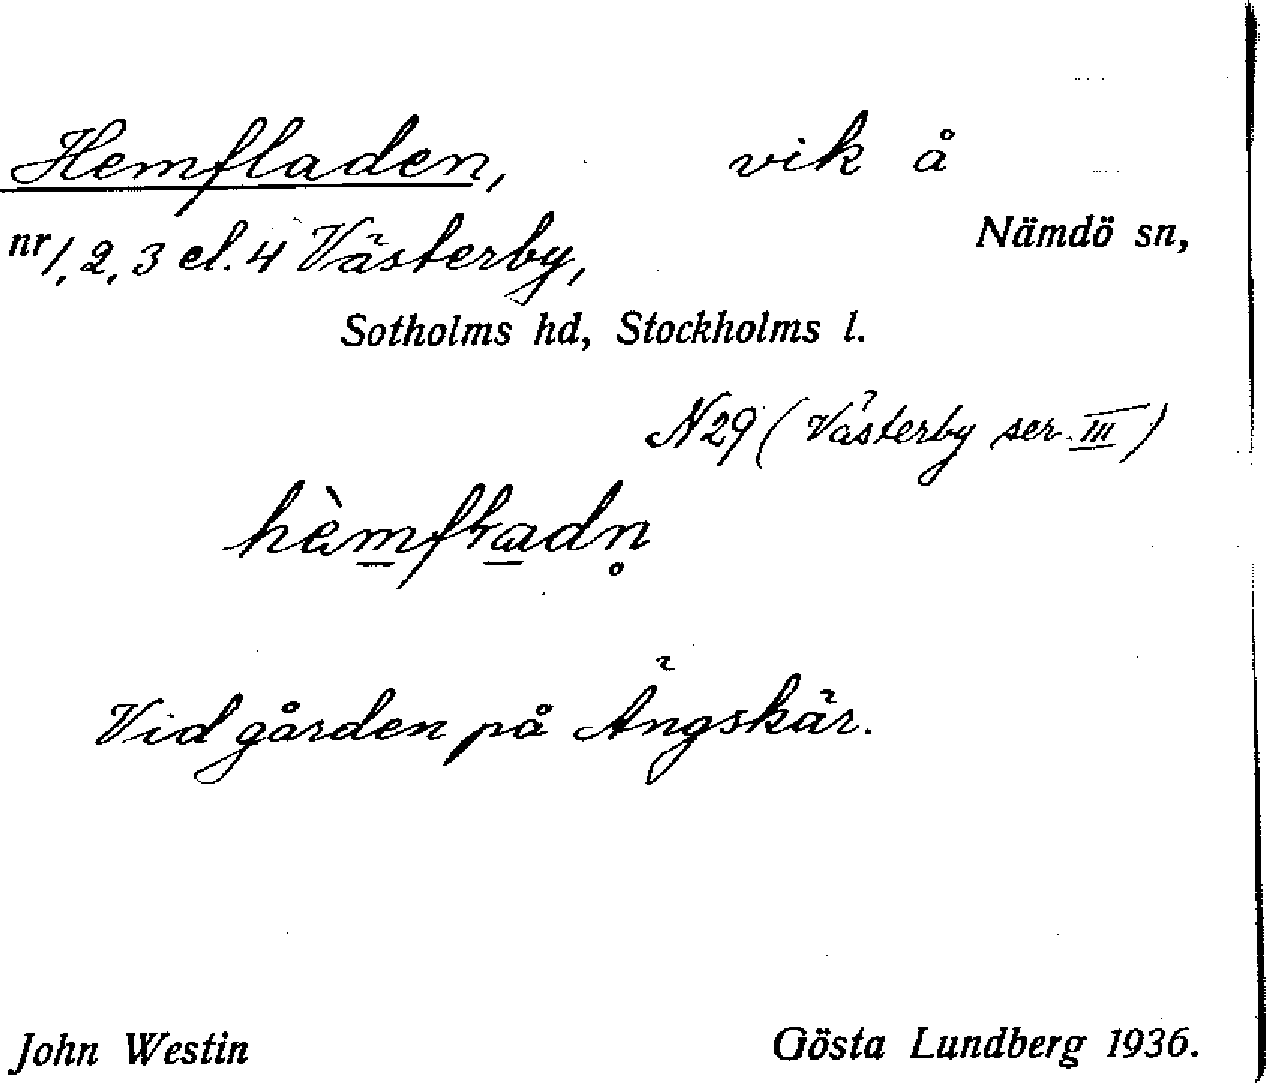 Hemfladen, vik å
nr 1, 2, 3 el. 4 Västerby, Nämdö sn,
Sotholms hd, Stockholms l.
N 29 (Västerby ser. III)
Vid gården på Ängskär.
John Westin Gösta Lundberg 1936.